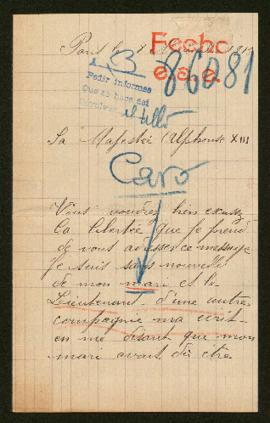 Fecho
86081
B
Pedir informe
Que se haga así
Sa Majestée Alphonse XIII
Caro
Vous voudrez bien excuser
la liberté que je prend
de vous adresse ce message
Je suis sans nouvelle
de mon mari et le
Lieutenant d'une autre
compagnie ma écrit
en me disant que mon
mari avait dû être